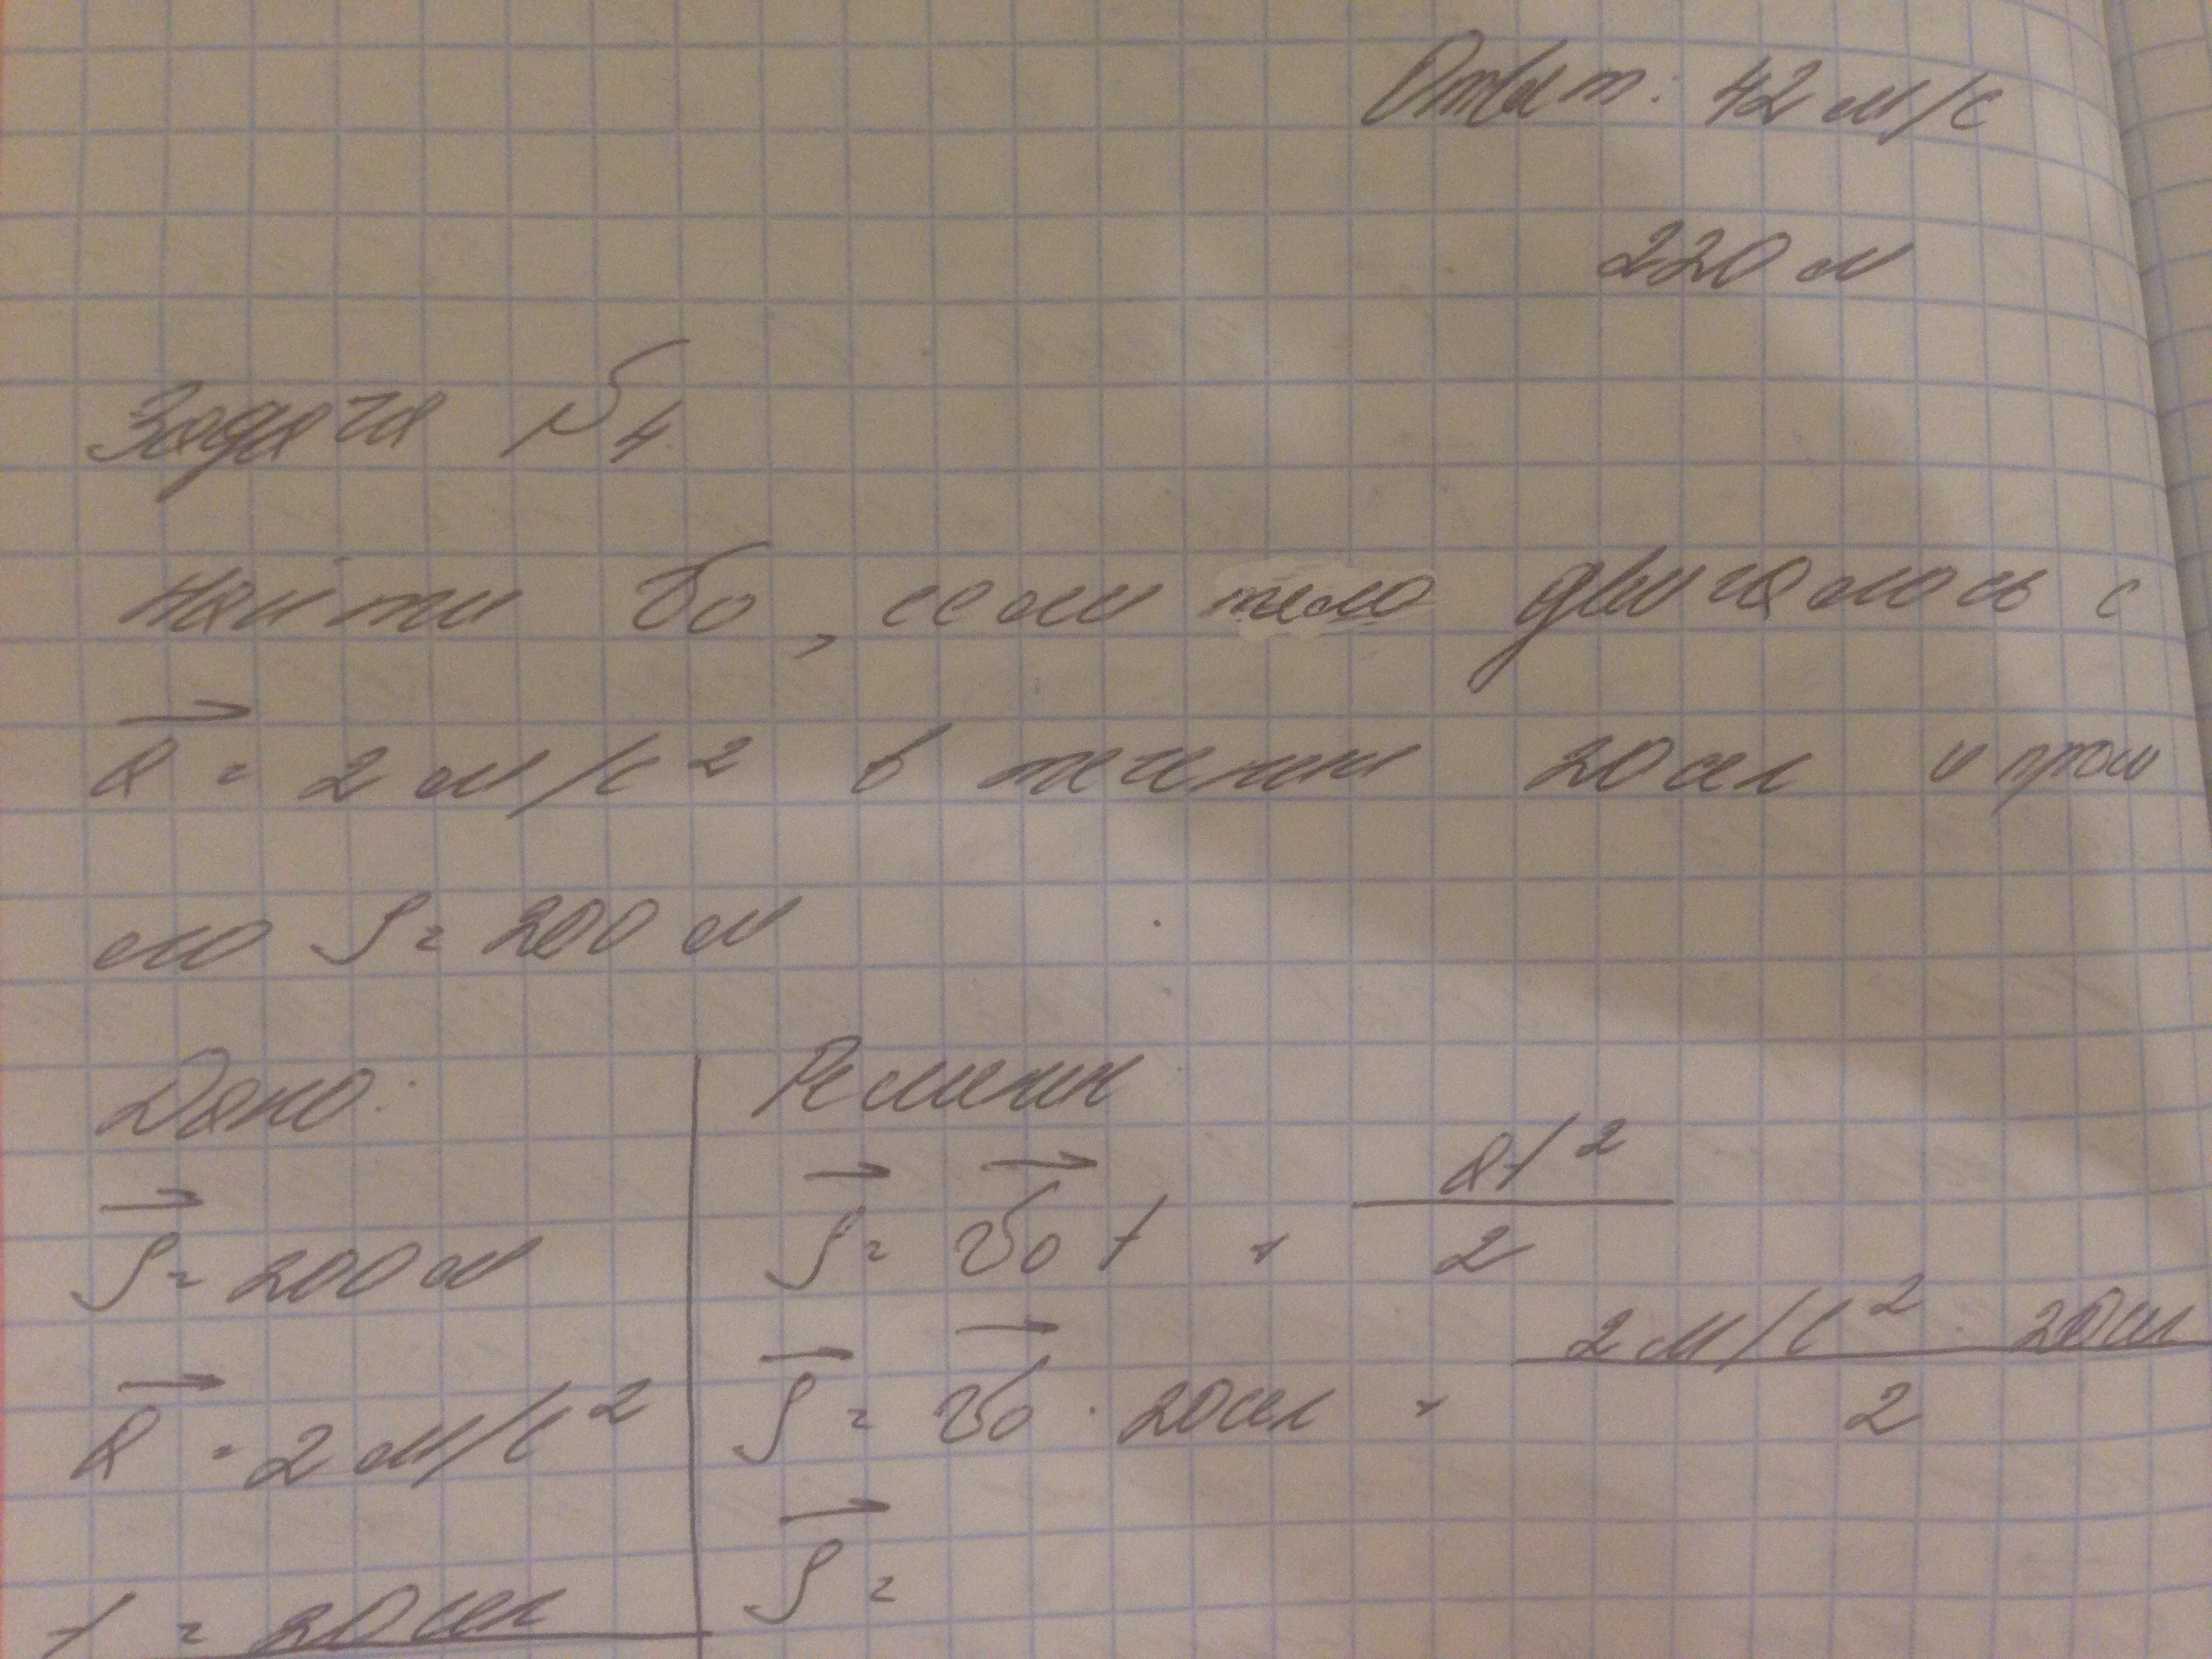 Ответ: 42 м/с
220 м
Задача №4
Найти v₀, если тело двигалось с
a⃗ = 2 м/с² в течении 20 сек и прош
ло S = 200 м
Дано:
S⃗ = 200 м
a⃗ = 2 м/с²
t = 20 сек
Решение
S⃗ = v⃗₀ t + at² / 2
S⃗ = v⃗₀ · 20 сек + 2 м/с² · 20 сек / 2
S⃗ =